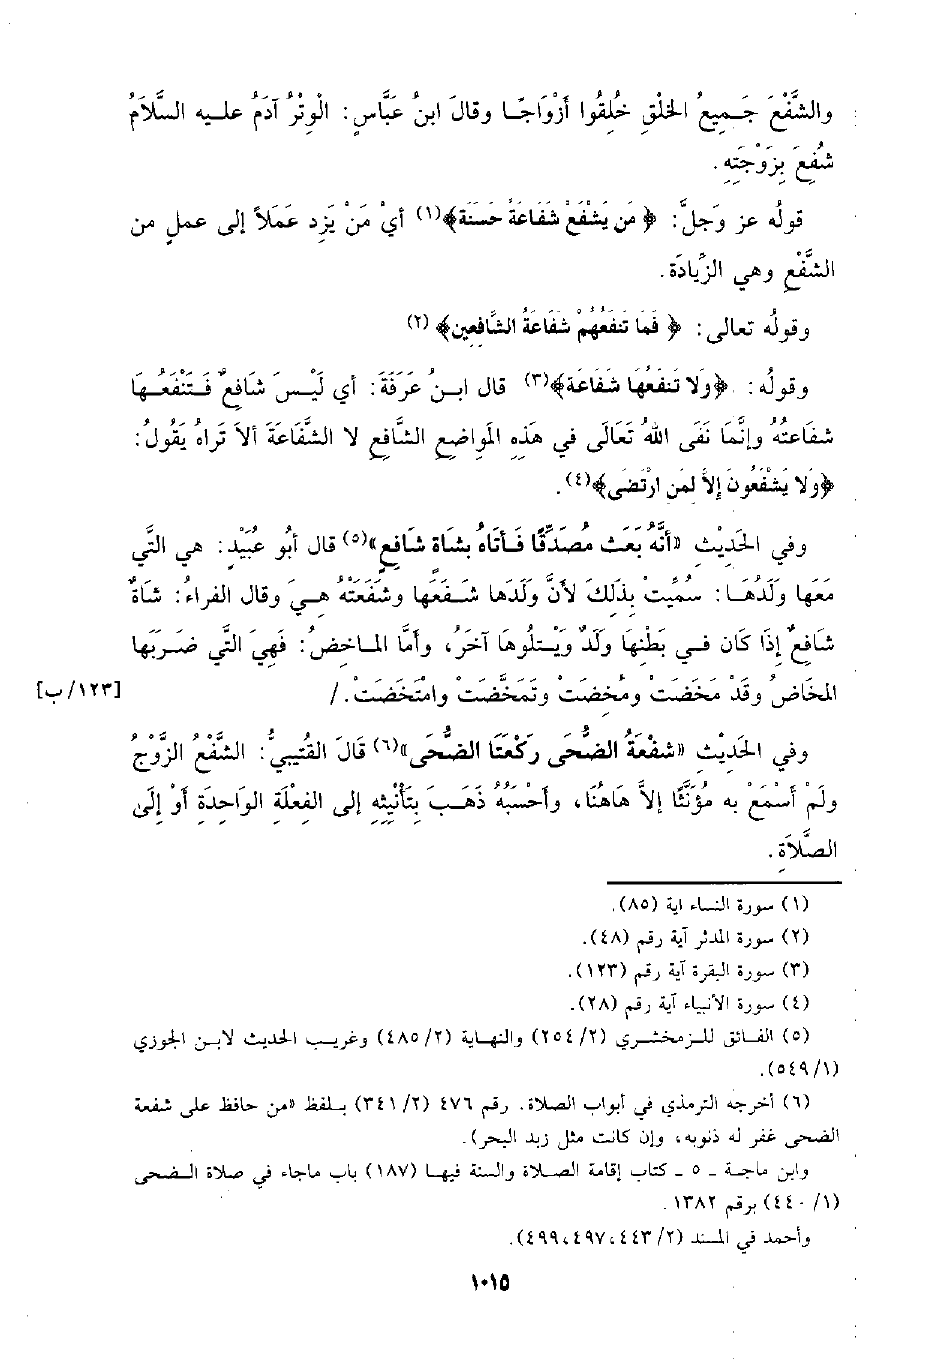 والشَّفْعَ جَمِيعُ الخَلْقِ خُلِقُوا أَزْوَاجًا وقالَ ابنُ عَبَّاسٍ: الْوِتْرُ آدَمُ عليه السَّلَامُ
شُفِعَ بِزَوْجَتِهِ.
قولُه عز وَجلَّ: ﴿ مَن يَشْفَعْ شَفَاعَةً حَسَنَة﴾(١) أيْ مَنْ يَزِد عَمَلاً إلى عملٍ من
الشَّفْعِ وهي الزِّيادَة.
وقولُه تعالى: ﴿ فَمَا تَنفَعُهُمْ شَفَاعَةُ الشَّافِعِين﴾ (٢)
وقولُه: ﴿وَلَا تَنفَعُهَا شَفَاعَة﴾(٣) قال ابنُ عَرَفَةَ: أي لَيْسَ شَافِعٌ فَتَنْفَعُها
شفَاعتُهُ وإنَّمَا نَفَى اللهُ تَعَالَى في هَذِهِ المَواضِعِ الشَّافِعِ لا الشَّفَاعَةَ ألاَ تَراهُ يَقُولُ:
﴿وَلَا يَشْفَعُونَ إلاَّ لمَن ارْتَضَى﴾(٤).
وفي الحَدِيْثِ «أنَّهُ بَعَث مُصَدِّقًا فَأتَاهُ بشَاة شَافِعٍ»(٥) قال أبُو عُبَيْدٍ: هي التَّي
مَعَها وَلَدُهَا: سُمِّيتْ بذَلكَ لأنَّ ولَدَها شَفَعَها وشفَعَتْهُ هيَ وقال الفراءُ: شاةٌ
شَافِعٌ إذَا كَان في بَطْنِها وَلَدٌ ويَتْلُوهَا آخَرُ، وأمَّا المَاخِضُ: فَهِيَ التَّي ضَرَبَها
المخَاضُ وقَدْ مَخَضَتْ ومُخِضَتْ وتَمَخَّضَتْ وامْتَخَضَتْ. / [١٢٣/ ب]
وفي الحَدِيْثِ «شفْعَةُ الضُّحَى رَكْعَتَا الضُّحَى»(٦) قَالَ القُتيبيُّ: الشَّفْعُ الزَّوْجُ
ولَمْ أَسْمَعْ به مُؤنَّثًا إلاَّ هَاهُنَا، وأحْسَبُهُ ذَهَبَ بِتَأنْيثِهِ إلى الفِعْلَةِ الوَاحِدَةِ أوْ إلَى
الصَّلاَةِ.
(١) سورة النساء اية (٨٥).
(٢) سورة المدثر آية رقم (٤٨).
(٣) سورة البقرة آية رقم (١٢٣).
(٤) سورة الأنبياء آية رقم (٢٨).
(٥) الفائق للزمخشري (٢/ ٢٥٤) والنهاية (٢/ ٤٨٥) وغريب الحديث لابن الجوزي
(١/ ٥٤٩).
(٦) أخرجه الترمذي في أبواب الصلاة. رقم ٤٧٦ (٢/ ٣٤١) بلفظ «من حافظ على شفعة
الضحى غفر له ذنوبه، وإن كانت مثل زبد البحر).
وابن ماجة - ٥ - كتاب إقامة الصلاة والسنة فيها (١٨٧) باب ماجاء في صلاة الضحى
(١/ ٤٤٠) برقم ١٣٨٢ .
وأحمد في المسند (٢/ ٤٤٣، ٤٩٧، ٤٩٩).
١٠١٥